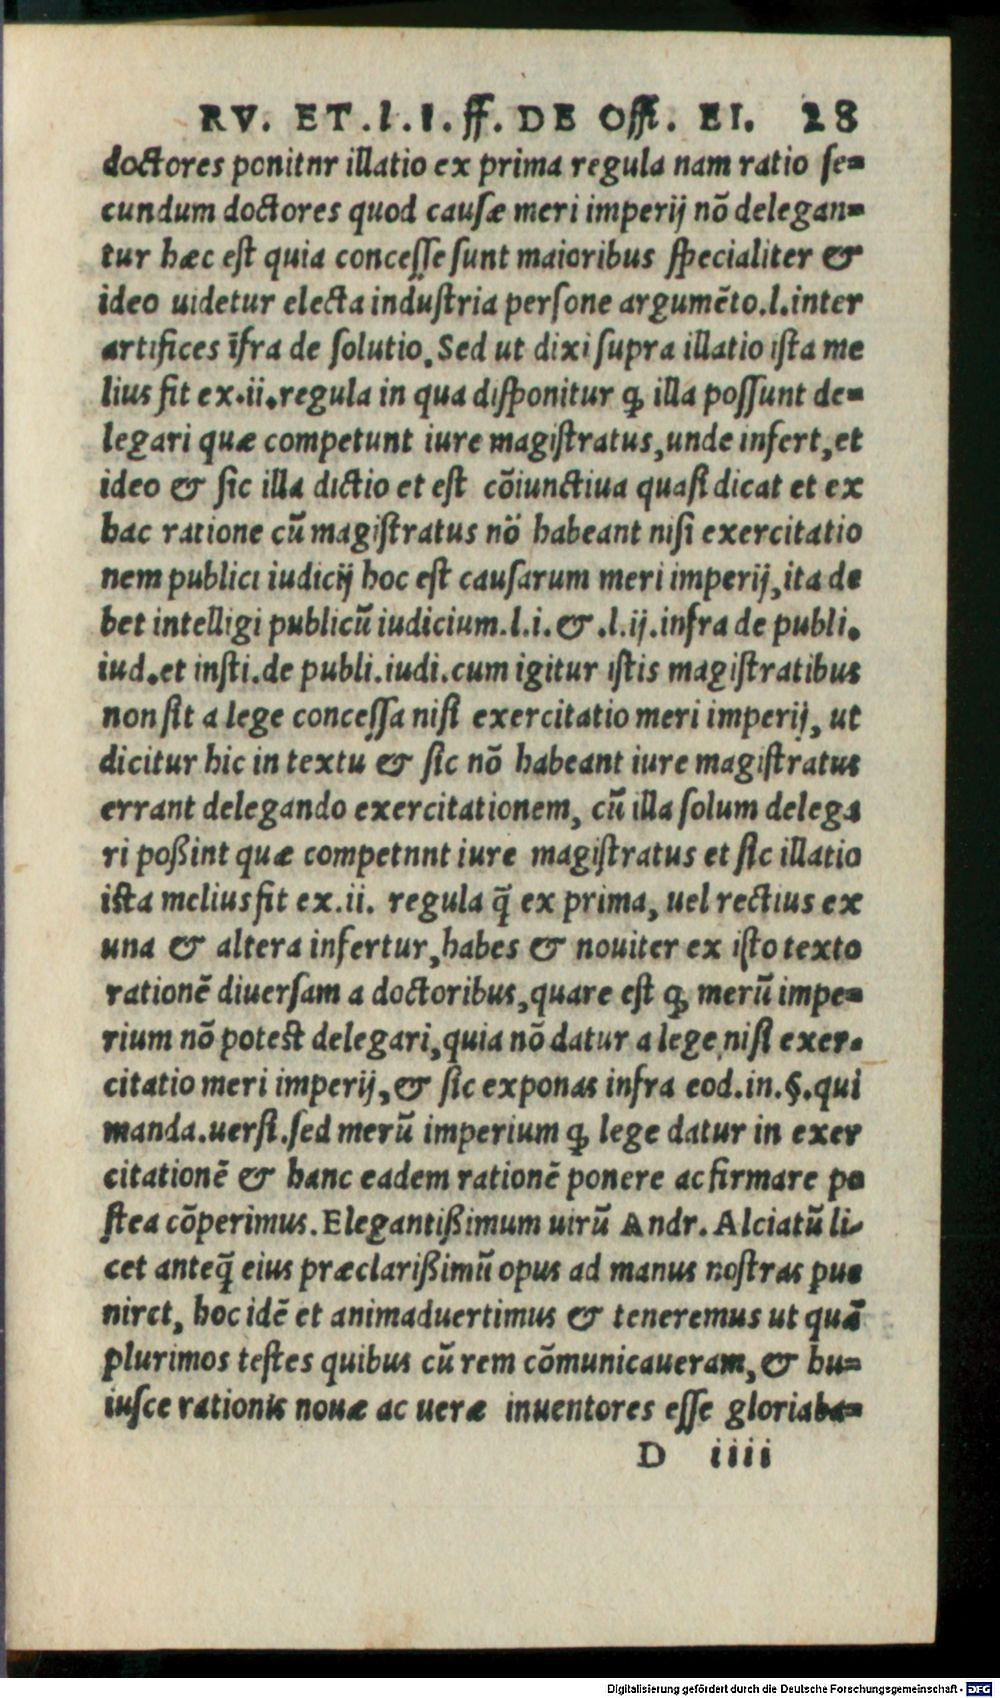 RV. ET .l.I.ff. DE Offi. EI. 28
doctores ponitnr illatio ex prima regula nam ratio ſe=
cundum doctores quod cauſæ meri imperij nõ delegan=
tur hæc eſt quia conceſſe ſunt maioribus ſpecialiter &
ideo uidetur electa induſtria perſone argumẽto.l.inter
artifices ĩfra de ſolutio. Sed ut dixi ſupra illatio iſta me
lius fit ex.ii.regula in qua diſponitur ꝙ illa poſſunt de=
legari quæ competunt iure magiſtratus,unde infert,et
ideo & ſic illa dictio et eſt cõiunctiua quaſi dicat et ex
hac ratione cũ magiſtratus nõ habeant niſi exercitatio
nem publici iudicij hoc eſt cauſarum meri imperij,ita de
bet intelligi publicũ iudicium.l.i.& .l.ij.infra de publi.
iud.et inſti.de publi.iudi.cum igitur iſtis magiſtratibus
non ſit a lege conceſſa niſi exercitatio meri imperij, ut
dicitur hic in textu & ſic nõ habeant iure magiſtratus
errant delegando exercitationem, cũ illa ſolum delega
ri poßint quæ competnnt iure magiſtratus et ſic illatio
iſta melius fit ex.ii. regula q̃ ex prima, uel rectius ex
una & altera infertur,habes & nouiter ex iſto texto
rationẽ diuerſam a doctoribus,quare eſt ꝙ merũ impe=
rium nõ poteſt delegari,quia nõ datur a lege niſi exer.
citatio meri imperij,& ſic exponas infra eod.in.§.qui
manda.uerſi.ſed merũ imperium ꝙ lege datur in exer
citationẽ & hanc eadem rationẽ ponere ac firmare po
ſtea cõperimus. Elegantißimum uirũ Andr. Alciatũ li
cet anteq̃ eius præclarißimũ opus ad manus noſtras pue
niret, hoc idẽ et animaduertimus & teneremus ut quã
plurimos teſtes quibus cũ rem cõmunicaueram,& hu=
iuſce rationis nouæ ac ueræ inuentores eſſe gloriaba=
D iiii
Digitalisierung gefördert durch die Deutsche Forschungsgemeinschaft - DFG